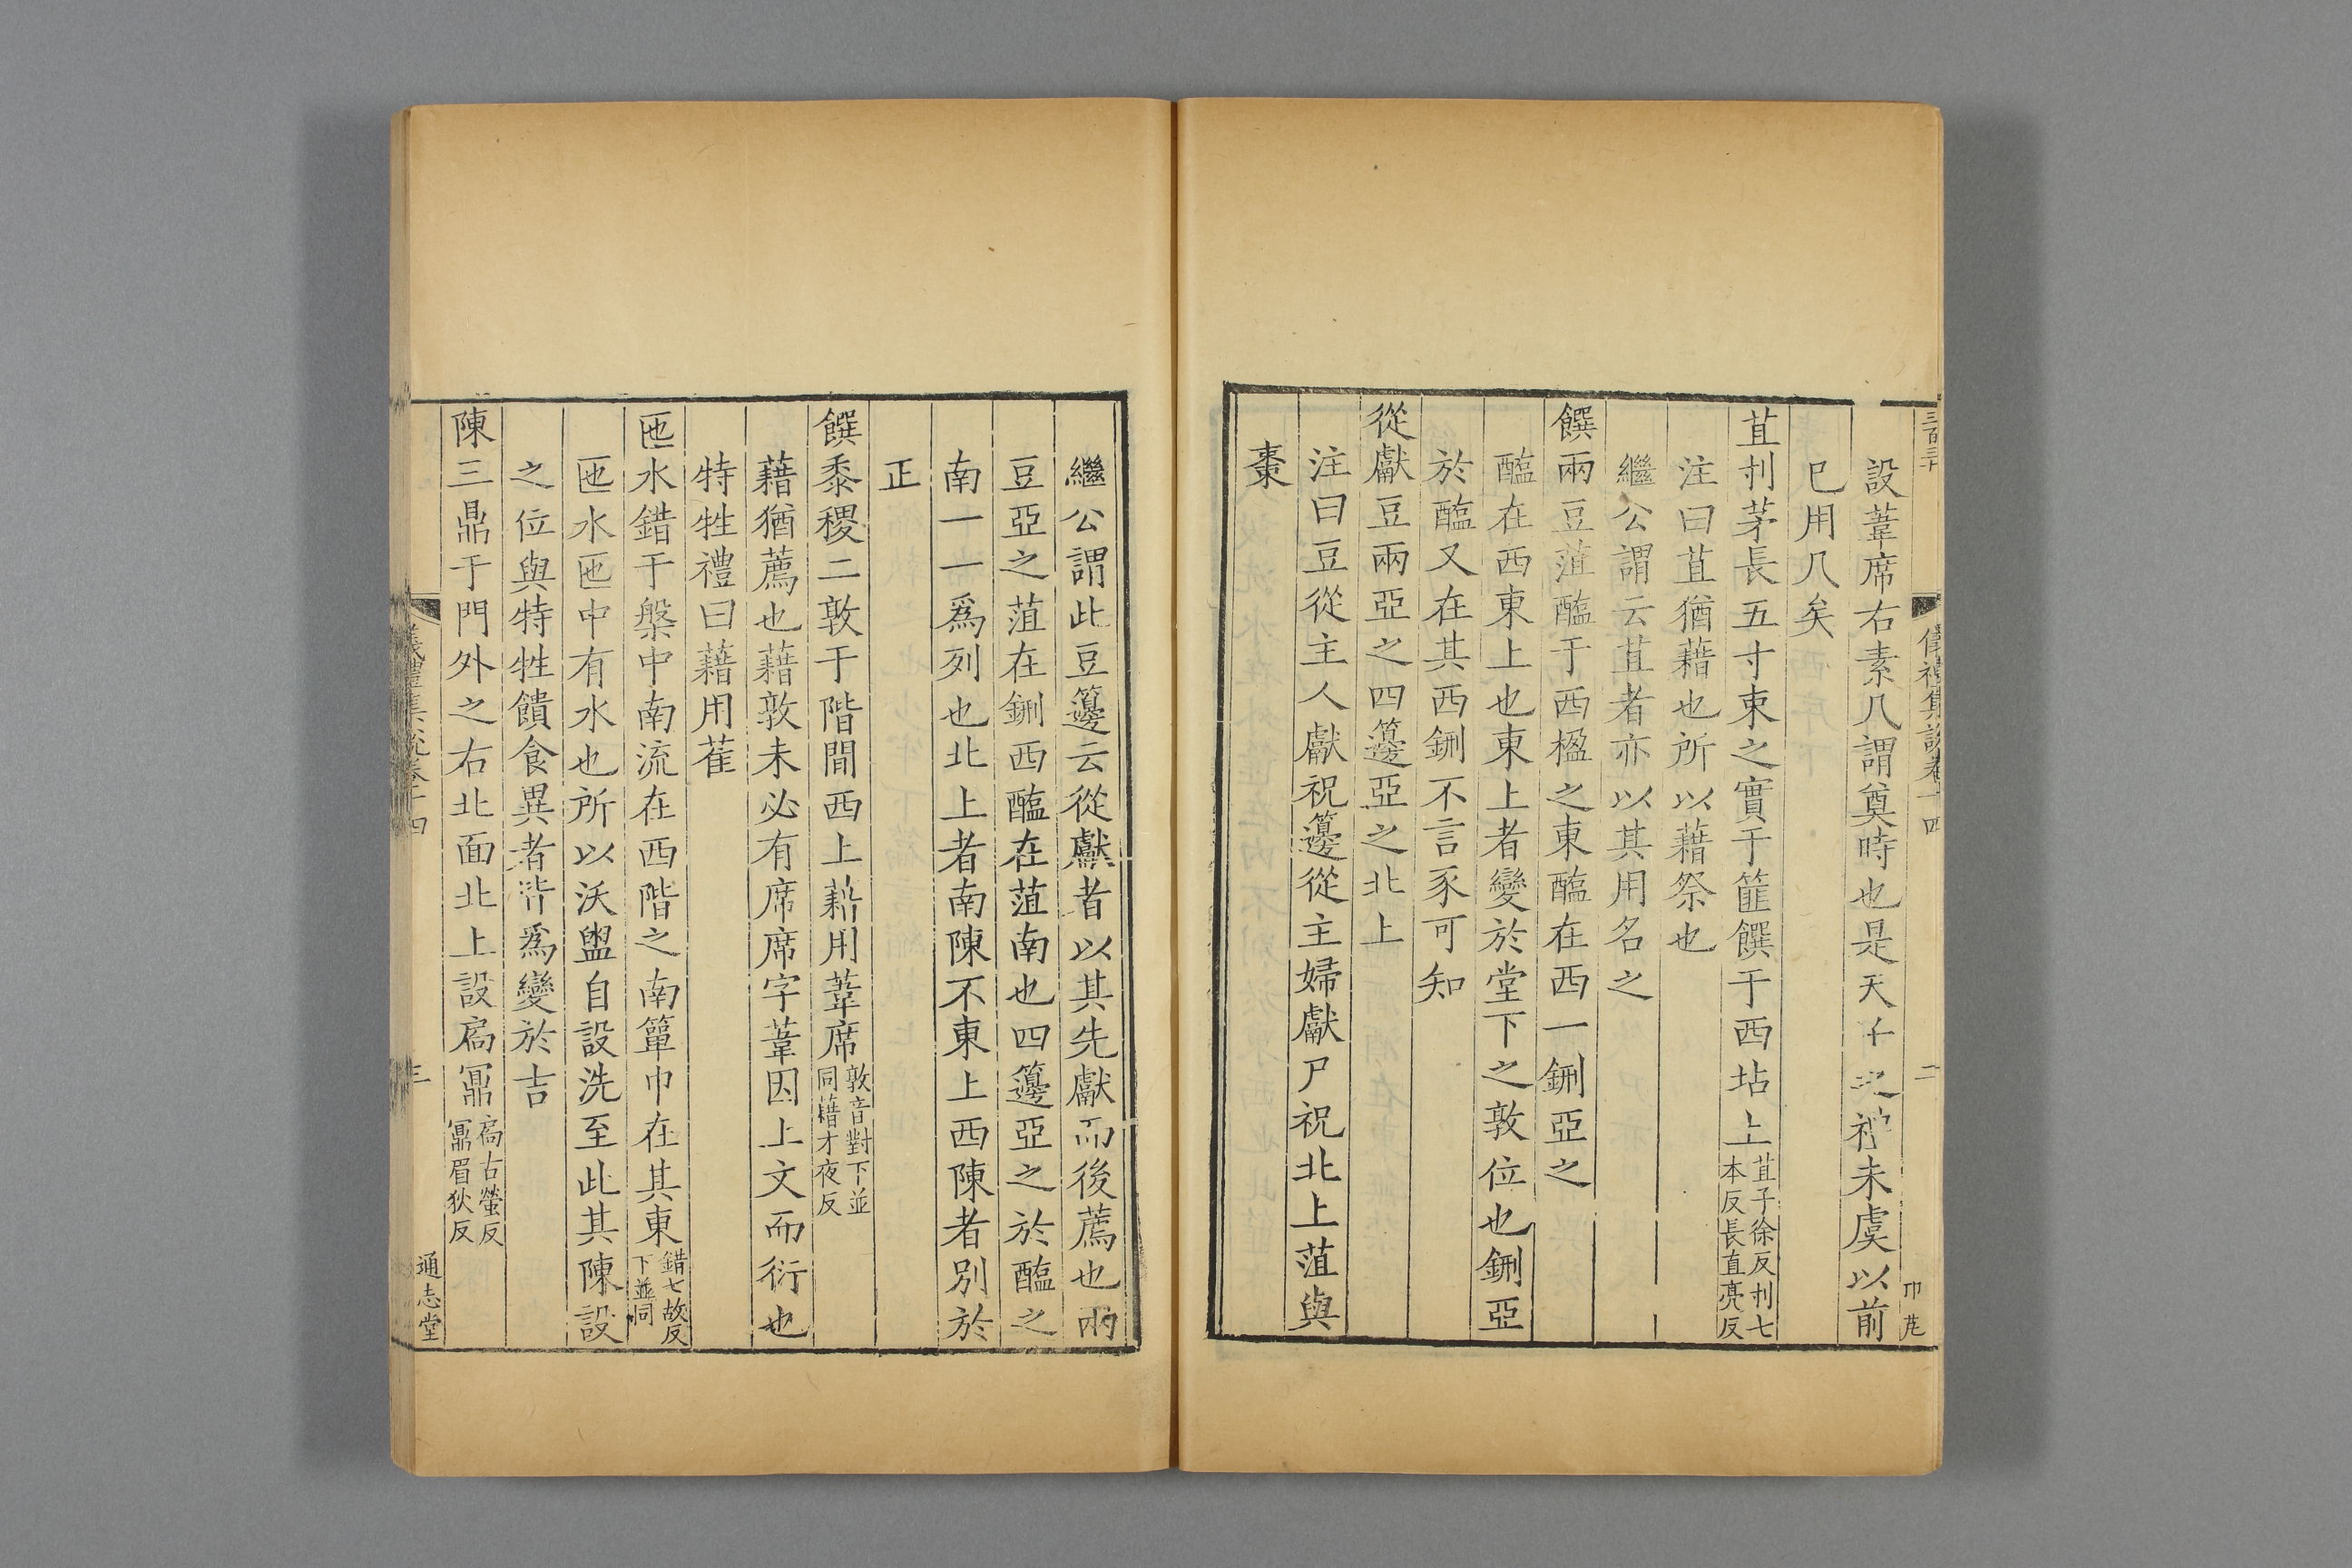 三百三十
儀禮集說卷十四
二
設葦席右素几謂奠時也是天子之禮未虞以前
已用几矣
苴刌茅長五寸束之實于篚饌于西坫上苴子徐反刌七
本反長直亮反
注曰苴猶藉也所以藉祭也
繼公謂云苴者亦以其用名之
饌兩豆菹醢于西楹之東醢在西一鉶亞之
醢在西東上也東上者變於堂下之敦位也鉶亞
於醢又在其西鉶不言豕可知
從獻豆兩亞之四籩亞之北上
注曰豆從主人獻祝籩從主婦獻尸祝北上菹與
棗
繼公謂此豆籩云從獻者以其先獻而後薦也兩
豆亞之菹在鉶西醢在菹南也四籩亞之於醢之
南一一爲列也北上者南陳不東上西陳者別於
正
饌黍稷二敦于階間西上藉用葦席敦音對下並
同藉才夜反
藉猶薦也藉敦未必有席席字葦因上文而衍也
特牲禮曰藉用萑
匜水錯于槃中南流在西階之南簞巾在其東錯七故反
下並同
匜水匜中有水也所以沃盥自設洗至此其陳設
之位與特牲饋食異者皆爲變於吉
陳三鼎于門外之右北面北上設扃鼏扃古螢反
鼏眉狄反
儀禮集說卷十四
三
通志堂